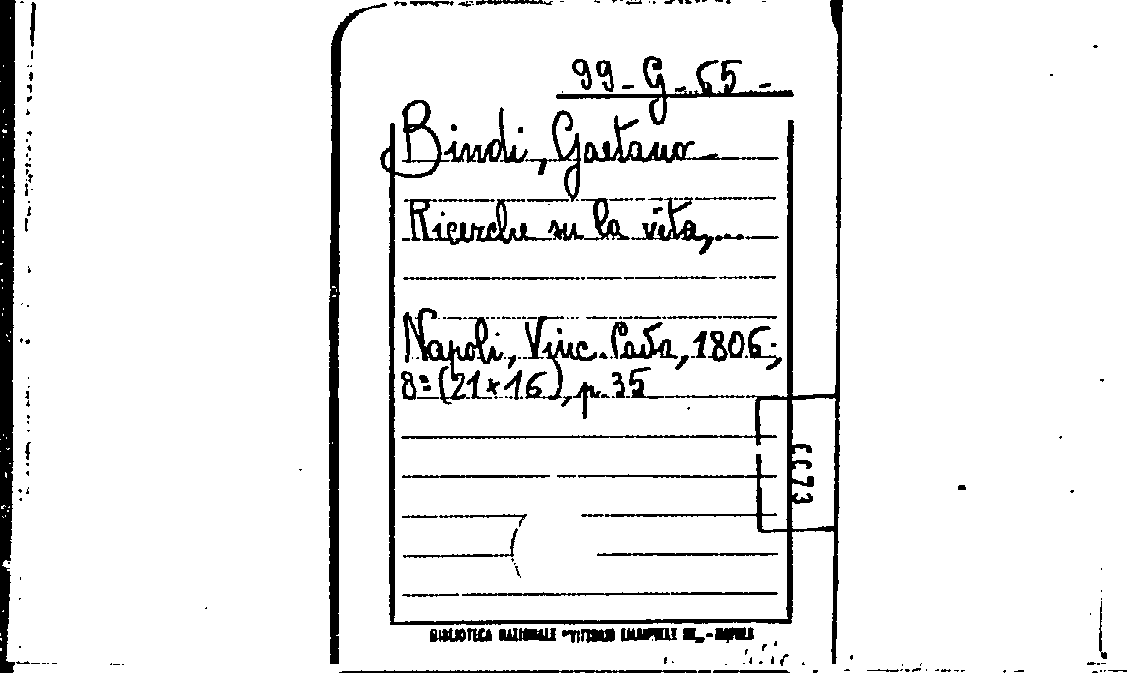 99-G-65-
Bindi, Gaetano
Ricerche su la vita,...
Napoli, Vinc. 1806;
8º (21×16), p. 35
BIBLIOTECA NAZIONALE "VITTORIO EMANUELE III" - NAPOLI